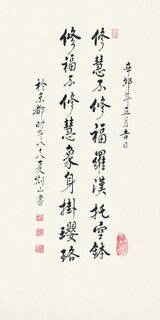 辛卯年五月吉日
修慧不修福羅漢托空鉢
修福不修慧象身掛瓔珞
於京都時年八十八夏劉山書